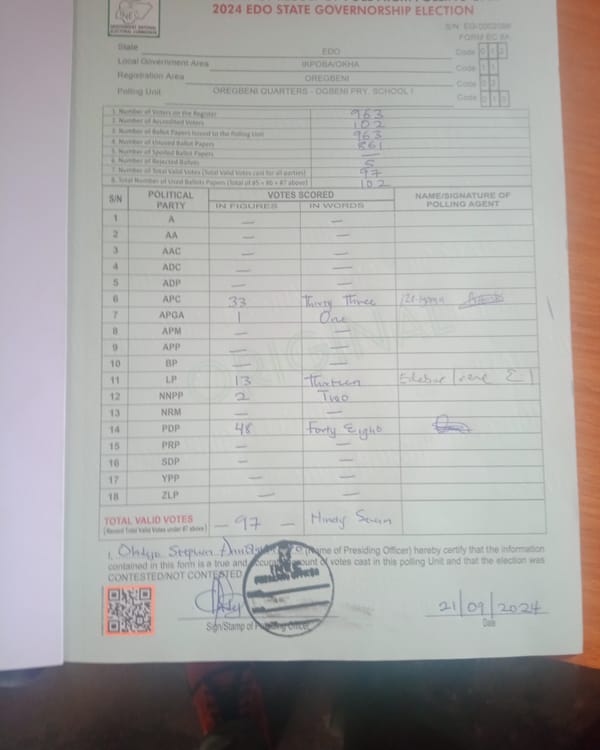 INEC
INDEPENDENT NATIONAL ELECTORAL COMMISSION
2024 EDO STATE GOVERNORSHIP ELECTION
FORM EC 8A
State EDO Code 0 1 2
Local Government Area IKPOBA/OKHA Code 1 1
Registration Area OREGBENI Code 0 2
Polling Unit OREGBENI QUARTERS - OGBENI PRY. SCHOOL I Code
1. Number of Voters on the Register 963
2. Number of Accredited Voters 102
3. Number of Ballot Papers Issued to the Polling Unit 963
4. Number of Unused Ballot Papers 861
5. Number of Spoiled Ballot Papers —
6. Number of Rejected Ballots 5
7. Number of Total Valid Votes (Total Valid Votes cast for all parties) 97
8. Total Number of Used Ballots Papers (Total of #5 + #6 + #7 above) 102
S/N POLITICAL PARTY VOTES SCORED NAME/SIGNATURE OF POLLING AGENT
IN FIGURES IN WORDS
1 A — —
2 AA — —
3 AAC — —
4 ADC — —
5 ADP — —
6 APC 33 Thirty Three
7 APGA 1 One
8 APM — —
9 APP — —
10 BP — —
11 LP 13 Thirteen
12 NNPP 2 Two
13 NRM — —
14 PDP 48 Forty Eight
15 PRP — —
16 SDP — —
17 YPP — —
18 ZLP — —
ORIGINAL
TOTAL VALID VOTES — 97 — Ninety Seven
(Record Total Valid Votes under #7 above)
I, Stephen (name of Presiding Officer) hereby certify that the information
contained in this form is a true and accurate account of votes cast in this polling Unit and that the election was
CONTESTED/NOT CONTESTED
PRESIDING OFFICER
21/09/2024
Sign/Stamp of Presiding Officer Date